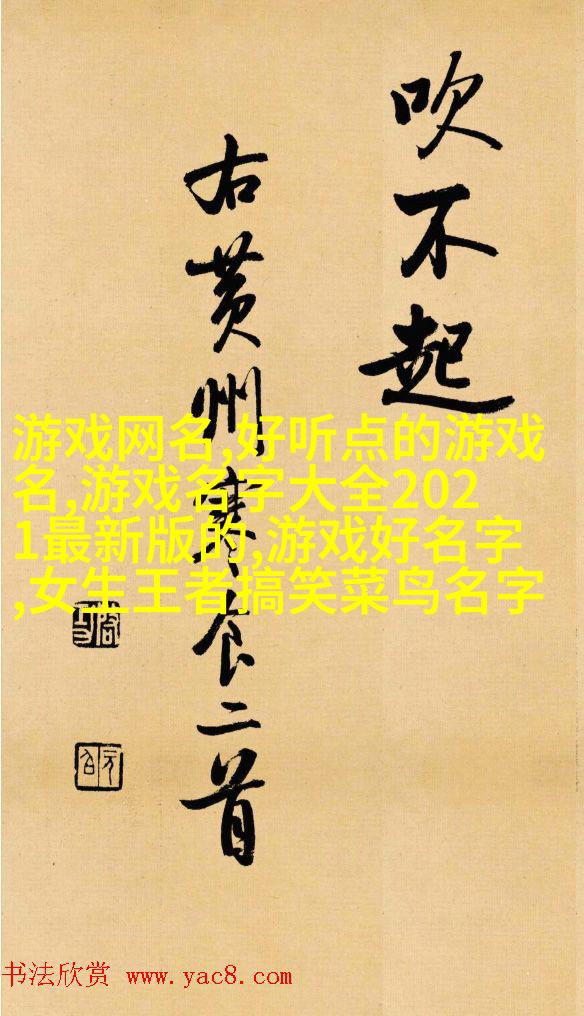 吹不起
右黄州寒食二首
游戏网名,好听点的游戏
名,游戏名字大全202
1最新版的,游戏好名字
,女生王者搞笑菜鸟名字
书法欣赏 www.yac8.com